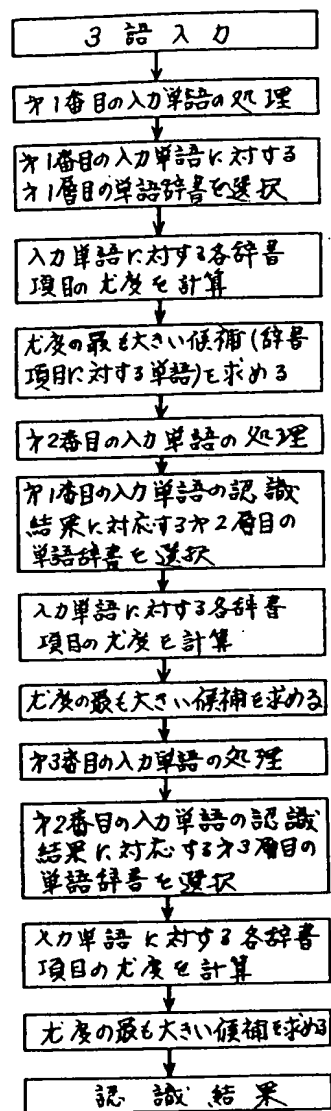 3語入力
才1番目の入力単語の処理
才1番目の入力単語に対する
才1層目の単語辞書を選択
入力単語に対する各辞書
項目の尤度を計算
尤度の最も大きい候補(辞書
項目に対する単語)を求める
才2番目の入力単語の処理
才1番目の入力単語の認識
結果に対応する才2層目の
単語辞書を選択
入力単語に対する各辞書
項目の尤度を計算
尤度の最も大きい候補を求める
才3番目の入力単語の処理
才2番目の入力単語の認識
結果に対応する才3層目の
単語辞書を選択
入力単語に対する各辞書
項目の尤度を計算
尤度の最も大きい候補を求める
認識結果